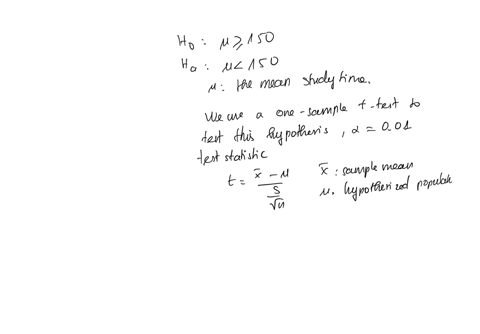 H₀ : μ ≥ 150
Hₐ : μ < 150
μ : the mean study time.
We use a one-sample t-test to
test this hypothesis, α = 0.01
test statistic
t = (x̄ - μ) / (S/√n) x̄ : sample mean
μ. hypothesized populat